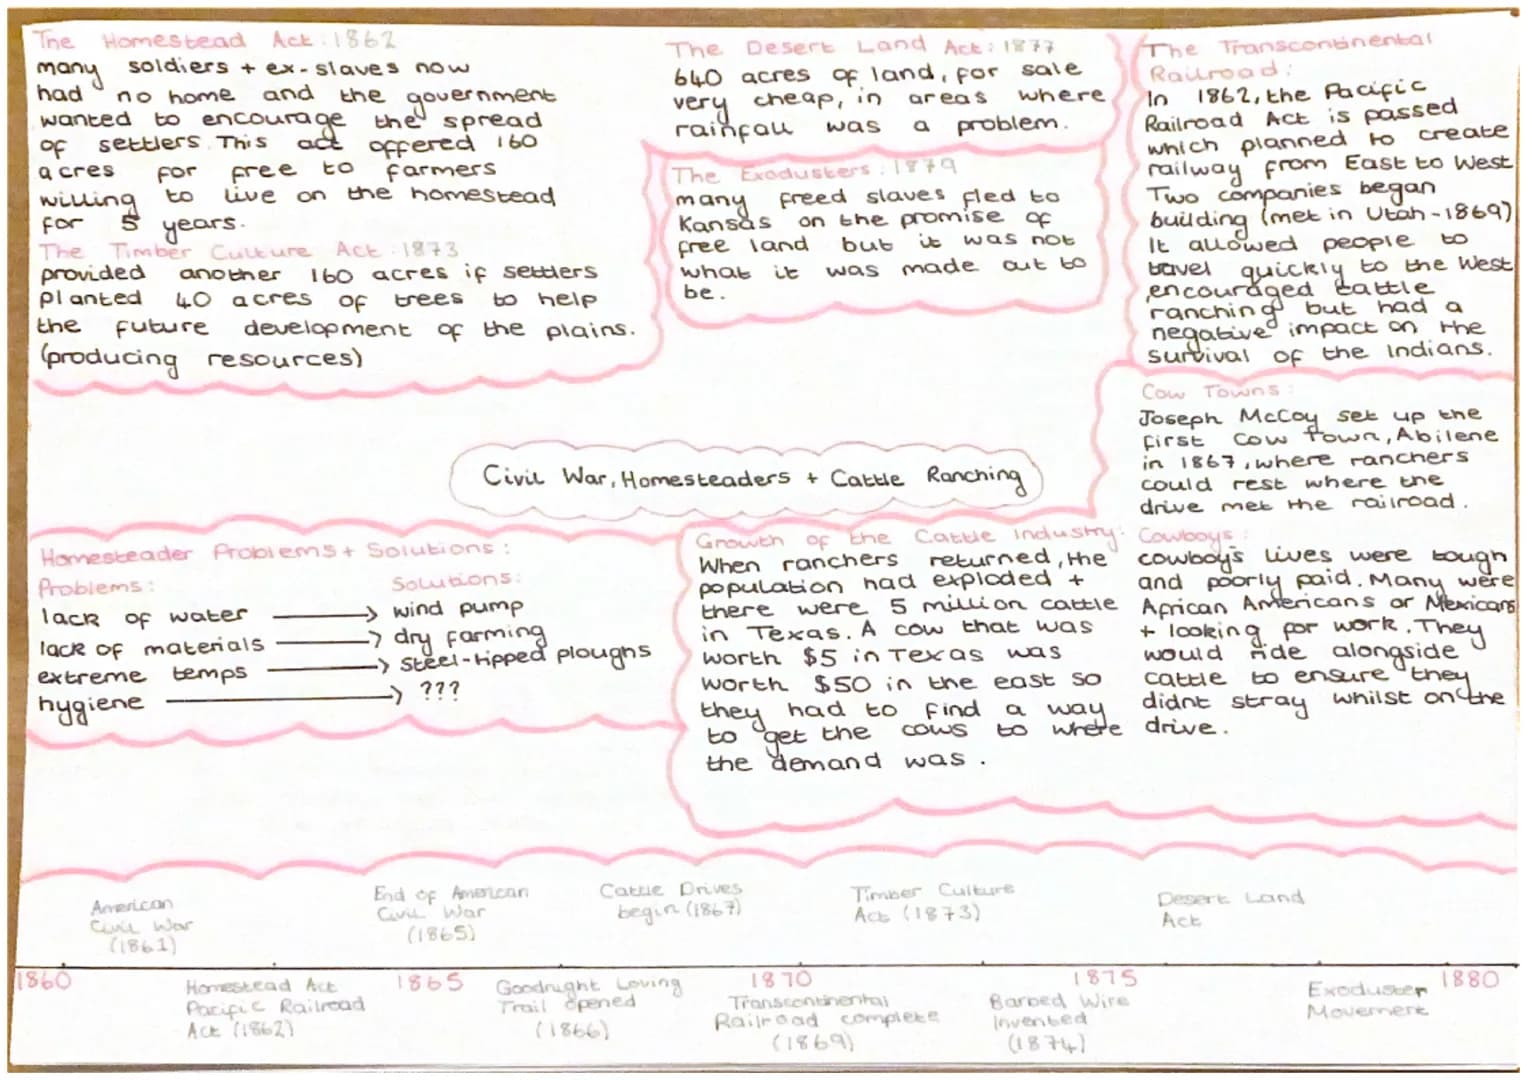 The Homestead Act: 1862
many soldiers + ex-slaves now
had no home and the government
wanted to encourage the spread
of settlers. This act offered 160
acres for free to farmers
willing to live on the homestead
for 5 years.
The Timber Culture Act: 1873
provided another 160 acres if settlers
planted 40 acres of trees to help
the future development of the plains.
(producing resources)
The Desert Land Act: 1877
640 acres of land, for sale
very cheap, in areas where
rainfall was a problem.
The Exodusters: 1879
many freed slaves fled to
Kansas on the promise of
free land but it was not
what it was made out to
be.
The Transcontinental
Railroad:
In 1862, the Pacific
Railroad Act is passed
which planned to create
railway from East to West
Two companies began
building (met in Utah-1869)
It allowed people to
travel quickly to the West
encouraged cattle
ranching but had a
negative impact on the
survival of the Indians.
Cow Towns:
Joseph McCoy set up the
first cow town, Abilene
in 1867, where ranchers
could rest where the
drive met the railroad.
Civil War, Homesteaders + Cattle Ranching
Homesteader Problems + Solutions:
Problems: Solutions:
lack of water → wind pump
lack of materials → dry farming
extreme temps → steel-tipped ploughs
hygiene → ???
Growth of the Cattle Industry:
When ranchers returned, the
population had exploded +
there were 5 million cattle
in Texas. A cow that was
worth $5 in Texas was
worth $50 in the east so
they had to find a way
to get the cows to where
the demand was.
Cowboys:
cowboy's lives were tough
and poorly paid. Many were
African Americans or Mexicans
+ looking for work. They
would ride alongside
cattle to ensure they
didnt stray whilst on the
drive.
American
Civil War
(1861)
End of American
Civil War
(1865)
Cattle Drives
begin (1867)
Timber Culture
Act (1873)
Desert Land
Act
1860 1865 1870 1875 1880
Homestead Act
Pacific Railroad
Act (1862)
Goodnight Loving
Trail opened
(1866)
Transcontinental
Railroad complete
(1869)
Barbed Wire
Invented
(1874)
Exoduster
Movement